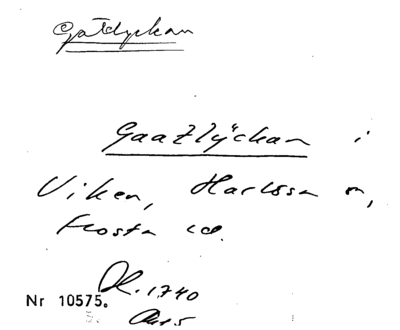 Gatlyckan
Gaatzlÿckan i
Viken, Harlösa sn,
Frosta hd.
Nr 10575. 1740